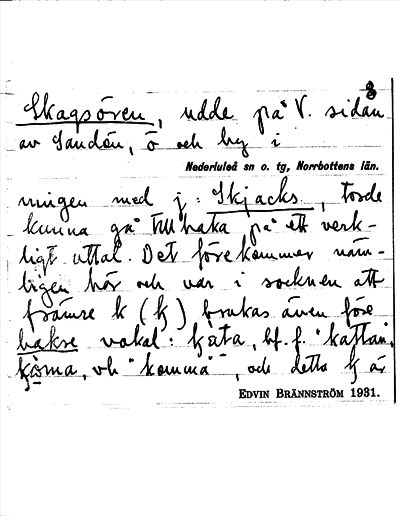 3
Skagsören, udde på V. sidan
av Sandön, ö och by i
Nederluleå sn o. tg, Norrbottens län.
ningen med j: Skjacks, torde
kunna gå tillbaka på ett verk-
ligt uttal. Det förekommer näm-
ligen här och var i socknen att
främre k (k) brukas även före
bakre vokal: kata, bf. f. "kattan",
koma, vb "komma", och detta k är
EDVIN BRÄNNSTRÖM 1931.